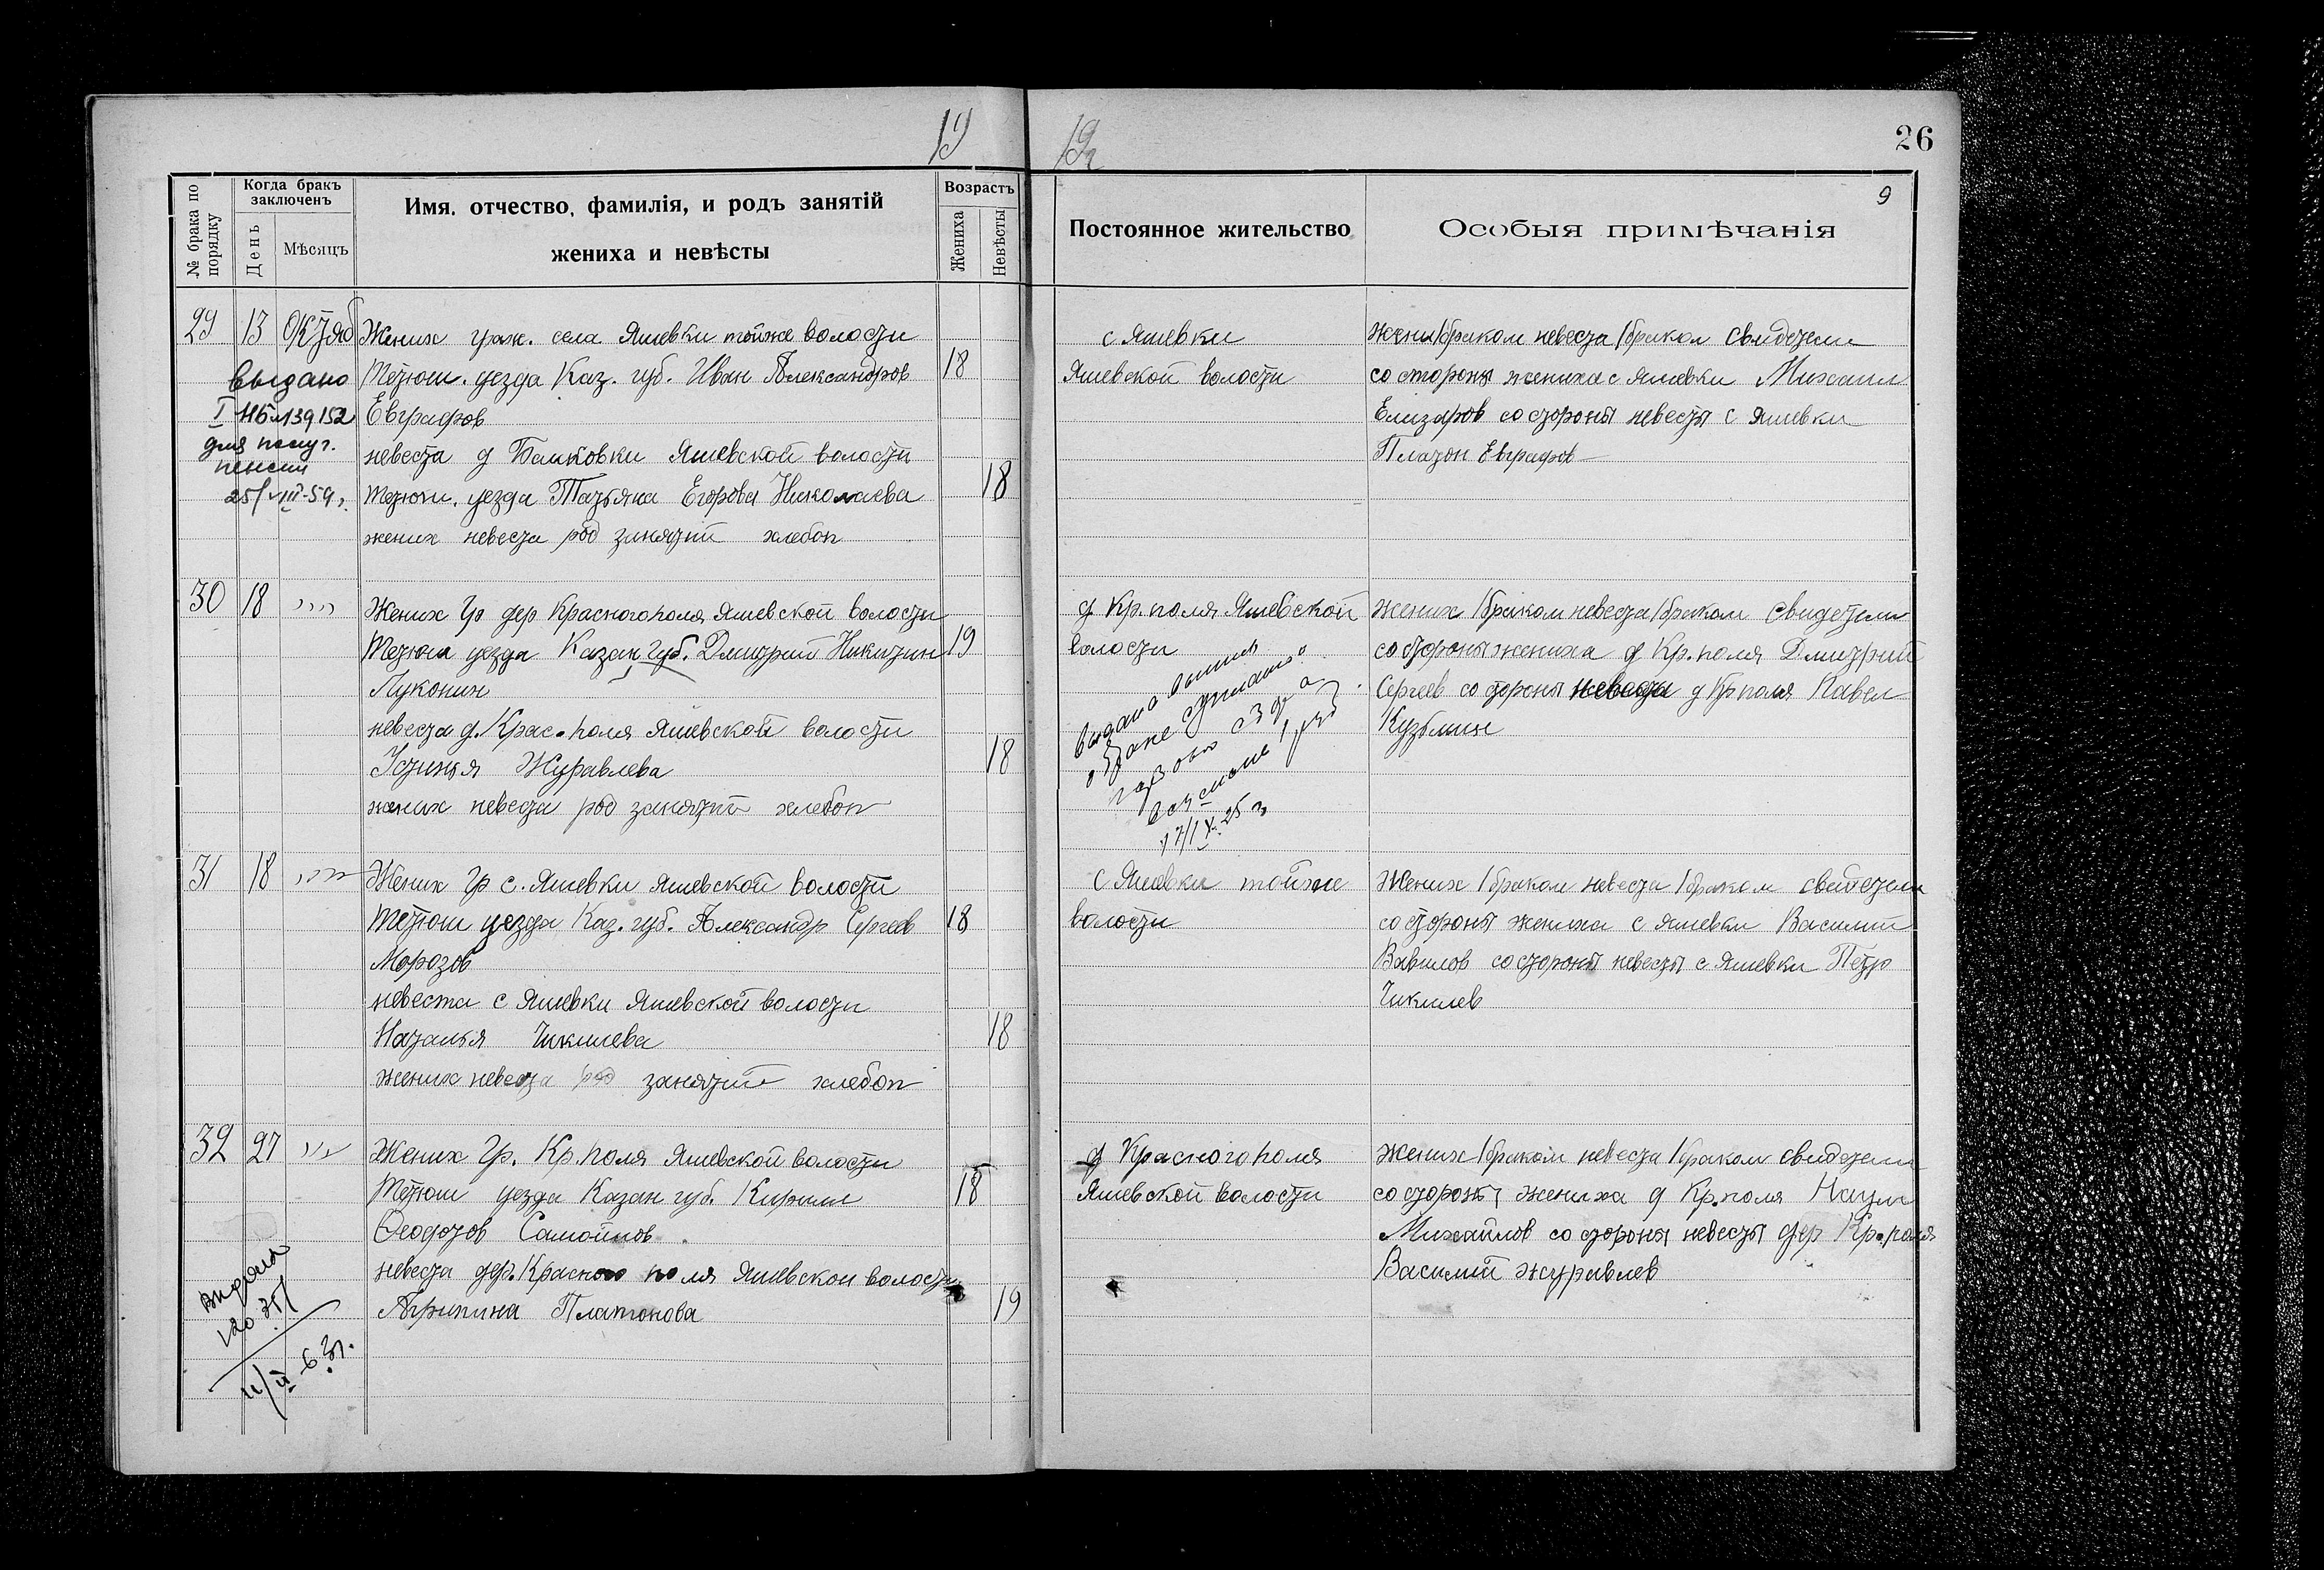 19
№ брака по порядку
Когда бракъ заключенъ
День
Мѣсяцъ
Имя, отчество, фамилія, и родъ занятій
жениха и невѣсты
Возрастъ
Жениха
Невѣсты
29 13 Октяб
Жених граж. села Яшевки тойже волости
Тетюш. уезда Каз. губ. Иван Александров 18
Евграфов
невеста д Башковки Яшевской волости
Тетюш. уезда Татьяна Егорова Николаева 18
жених невеста род занятий хлебоп
выдано
I НБ №139152
для получ.
пенсии
25/VIII-59 г.
30 18 〃〃
Жених Гр дер Красногополя Яшевской волости
Тетюш уезда Казан губ. Дмитрий Никитин 19
Луконин
невеста д. Крас. поля Яшевской волости
Устинья Журавлева 18
жених невеста род занятий хлебоп
31 18 〃〃
Жених Гр с. Яшевки Яшевской волости
Тетюш уезда Каз. губ. Александр Сергеев 18
Морозов
невеста с Яшевки Яшевской волости
Наталья Чикилева 18
жених невеста род занятий хлебоп
32 27 〃〃
Жених Гр. Кр. поля Яшевской волости
Тетюш уезда Казан губ. Кирилл 18
Федотов Самойлов
невеста дер. Красного поля Яшевской волости
Агрипина Платонова 19
выдано
11/II-63г.
19г
26
9
Постоянное жительство
Особыя примѣчанія
с Яшевки
Яшевской волости
жених I браком невеста I браком свидетели
со стороны жениха с Яшевки Михаил
Елизаров со стороны невесты с Яшевки
Платон Евграфов
д Кр. поля Яшевской
волости
выдана выпись
о браке
17/IX-25 г
жених I браком невеста I браком свидетели
со стороны жениха д Кр. поля Дмитрий
Сергеев со стороны невесты д Кр поля Павел
Кузьмин
с Яшевки тойже
волости
Жених I браком невеста I браком свидетели
со стороны жениха с Яшевки Василий
Вавилов со стороны невесты с Яшевки Петр
Чикилев
д Красногополя
Яшевской волости
жених I браком невеста I браком свидетели
со стороны жениха д Кр. поля Наум
Михайлов со стороны невесты дер Кр. поля
Василий Журавлев